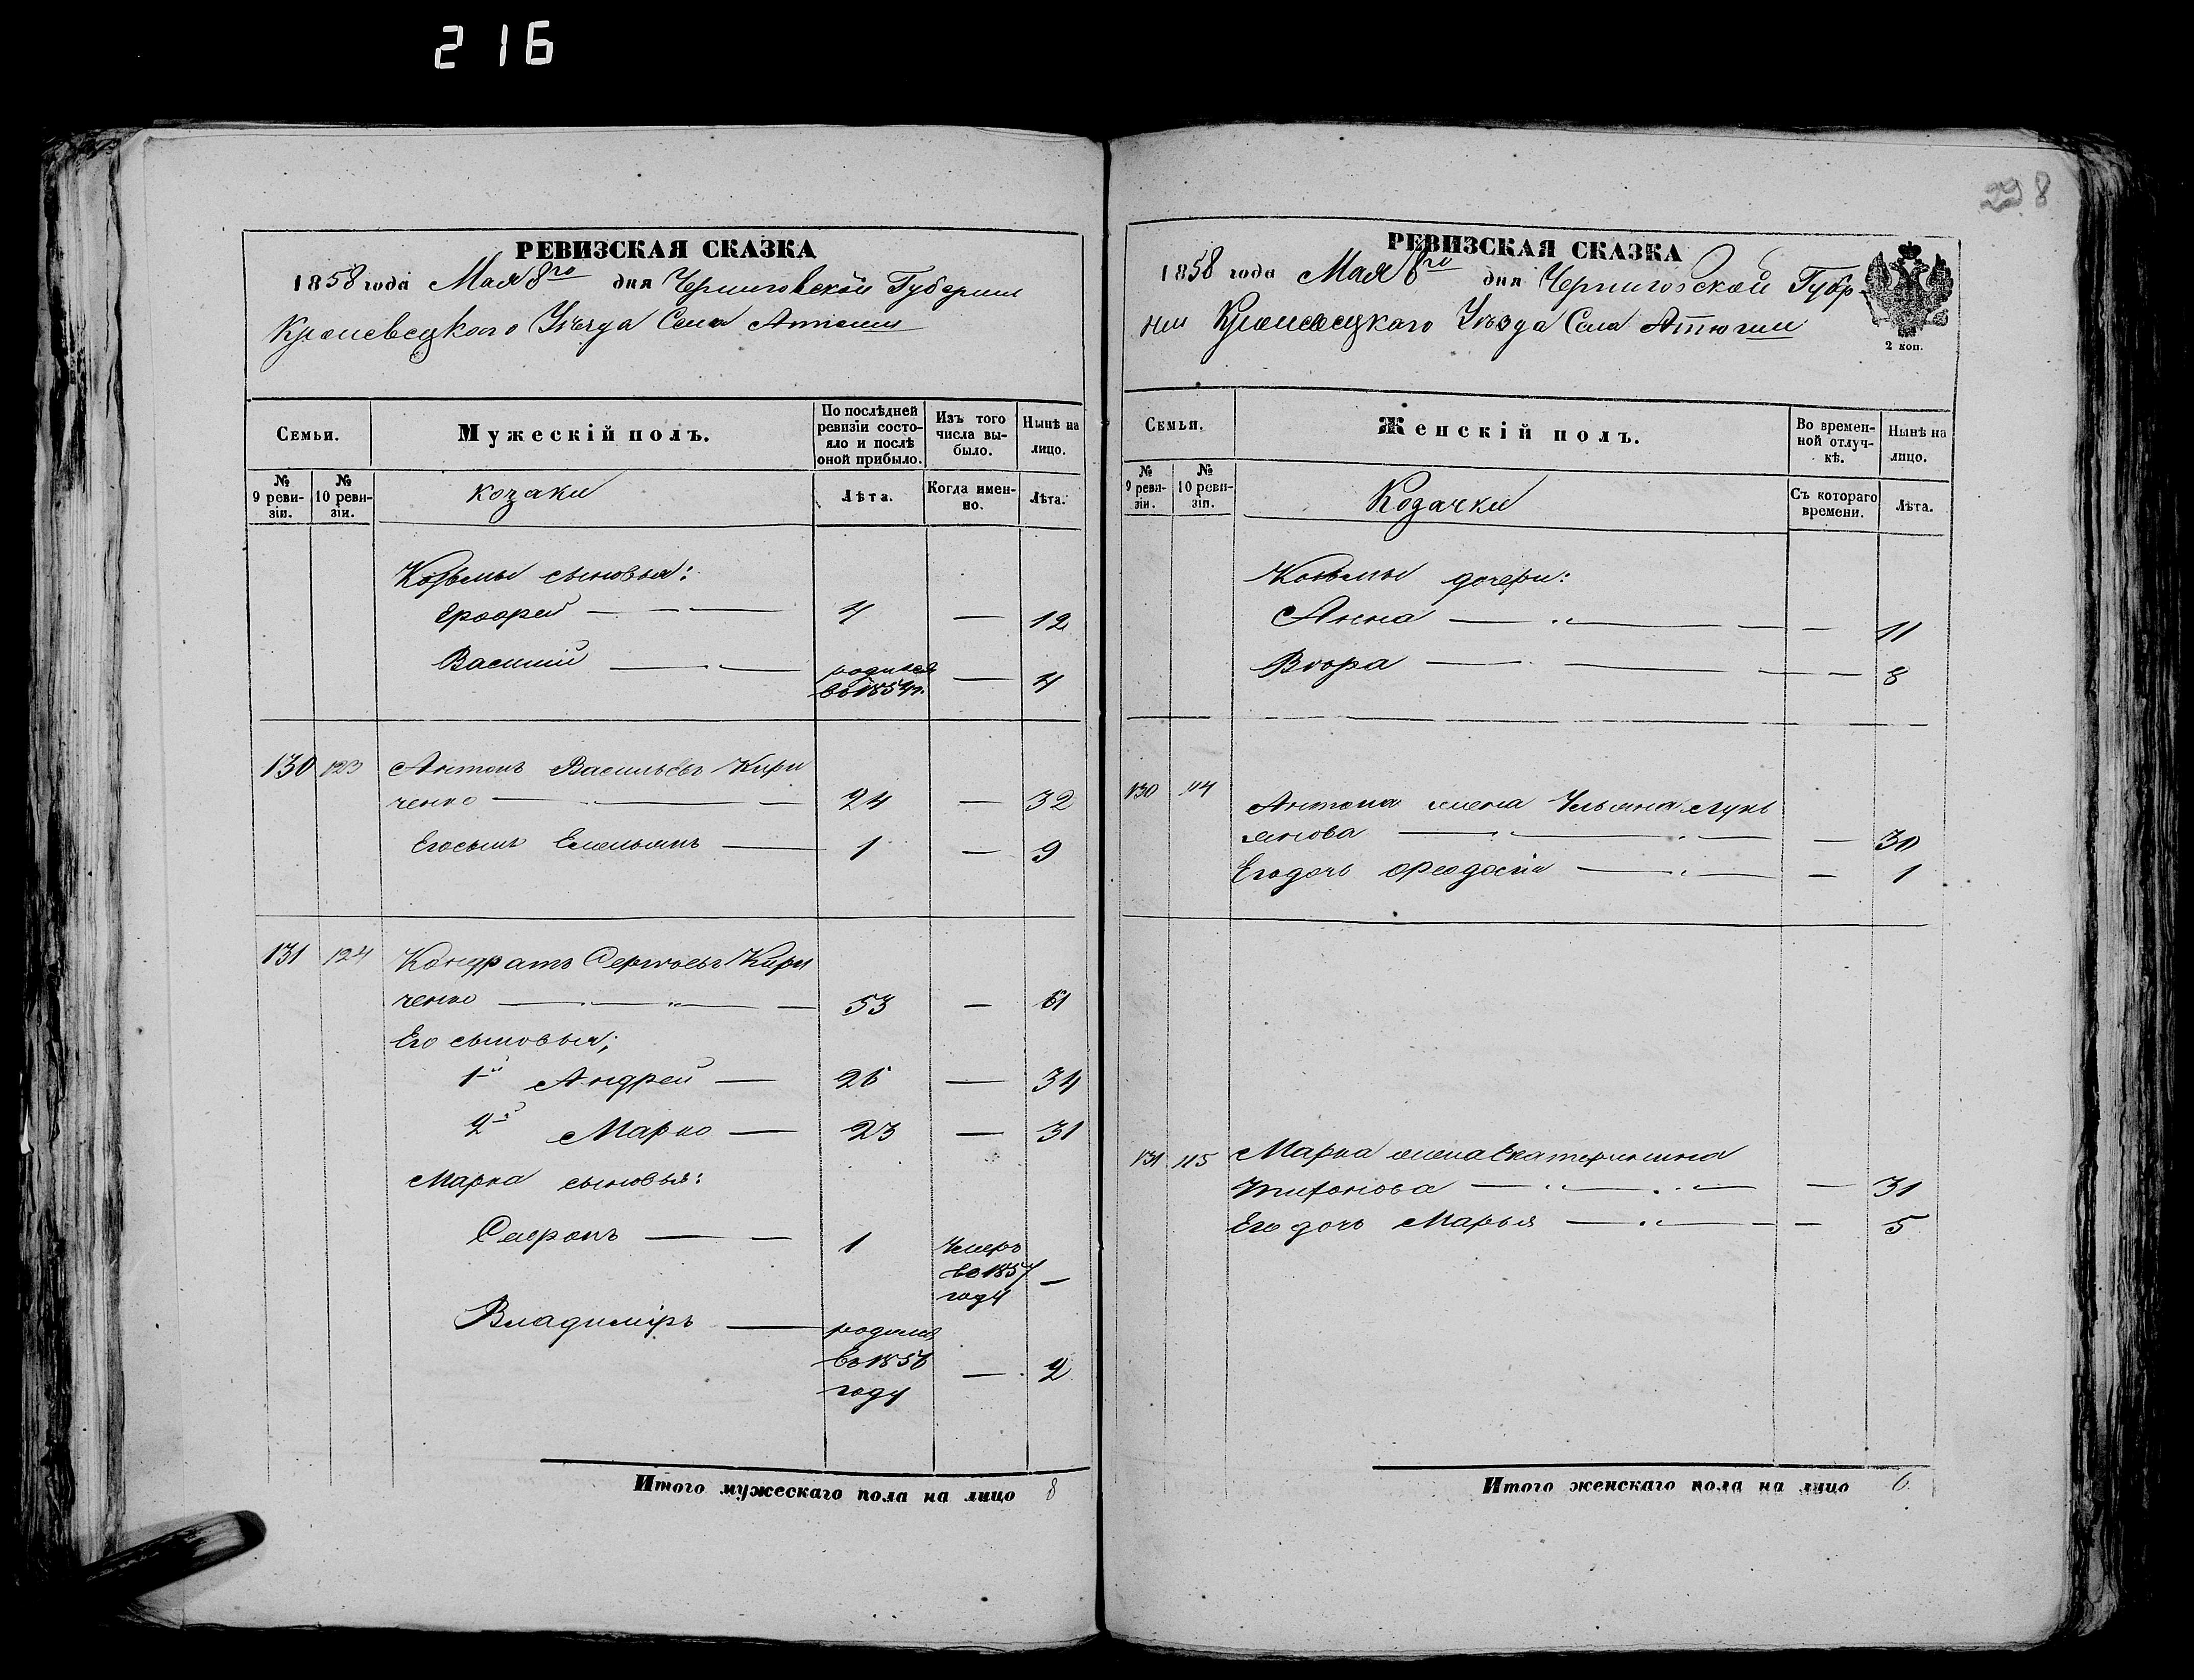 216
298
РЕВИЗСКАЯ СКАЗКА
1858 года Мая 8го дня Черниговской Губернии
Кролевецкаго Уѣзда Села Атюши
Семьи.
Мужескій полъ.
По послѣдней ревизіи состояло и послѣ оной прибыло.
Изъ того числа выбыло.
Нынѣ на лицо.
№ 9 ревизіи.
№ 10 ревизіи.
козаки
Лѣта.
Когда именно.
Лѣта.
Козьмы сыновья:
Ерофей — 4 — 12
Василий — родился во 1854 г. — 4
130 123 Антонъ Васильевъ Кири
ченко — 24 — 32
Его сынъ Емельянъ — 1 — 9
131 124 Кондратъ Сергѣевъ Кири
ченко — 53 — 61
Его сыновья;
1й Андрей — 26 — 34
2й Марко — 23 — 31
Марка сыновья:
Сафронъ — 1 Умеръ во 1857 году —
Владиміръ — родился во 1856 году — 2
Итого мужескаго пола на лицо 8
РЕВИЗСКАЯ СКАЗКА
1858 года Мая 8го дня Черниговской Губер
нии Кролевецкаго Уѣзда Села Атюши
2 коп.
Семьи.
Женскій полъ.
Во временной отлучкѣ.
Нынѣ на лицо.
№ 9 ревизіи.
№ 10 ревизіи.
Козачки
Съ котораго времени.
Лѣта.
Козьмы дочери:
Анна — — 11
Вѣра — — 8
130 114 Антона жена Ульяна Лукь
янова — — 30
Его дочь Феодосія — — 1
131 115 Марка жена Екатерина
Тихонова — — 31
Его дочь Марья — — 5
Итого женскаго пола на лицо 6